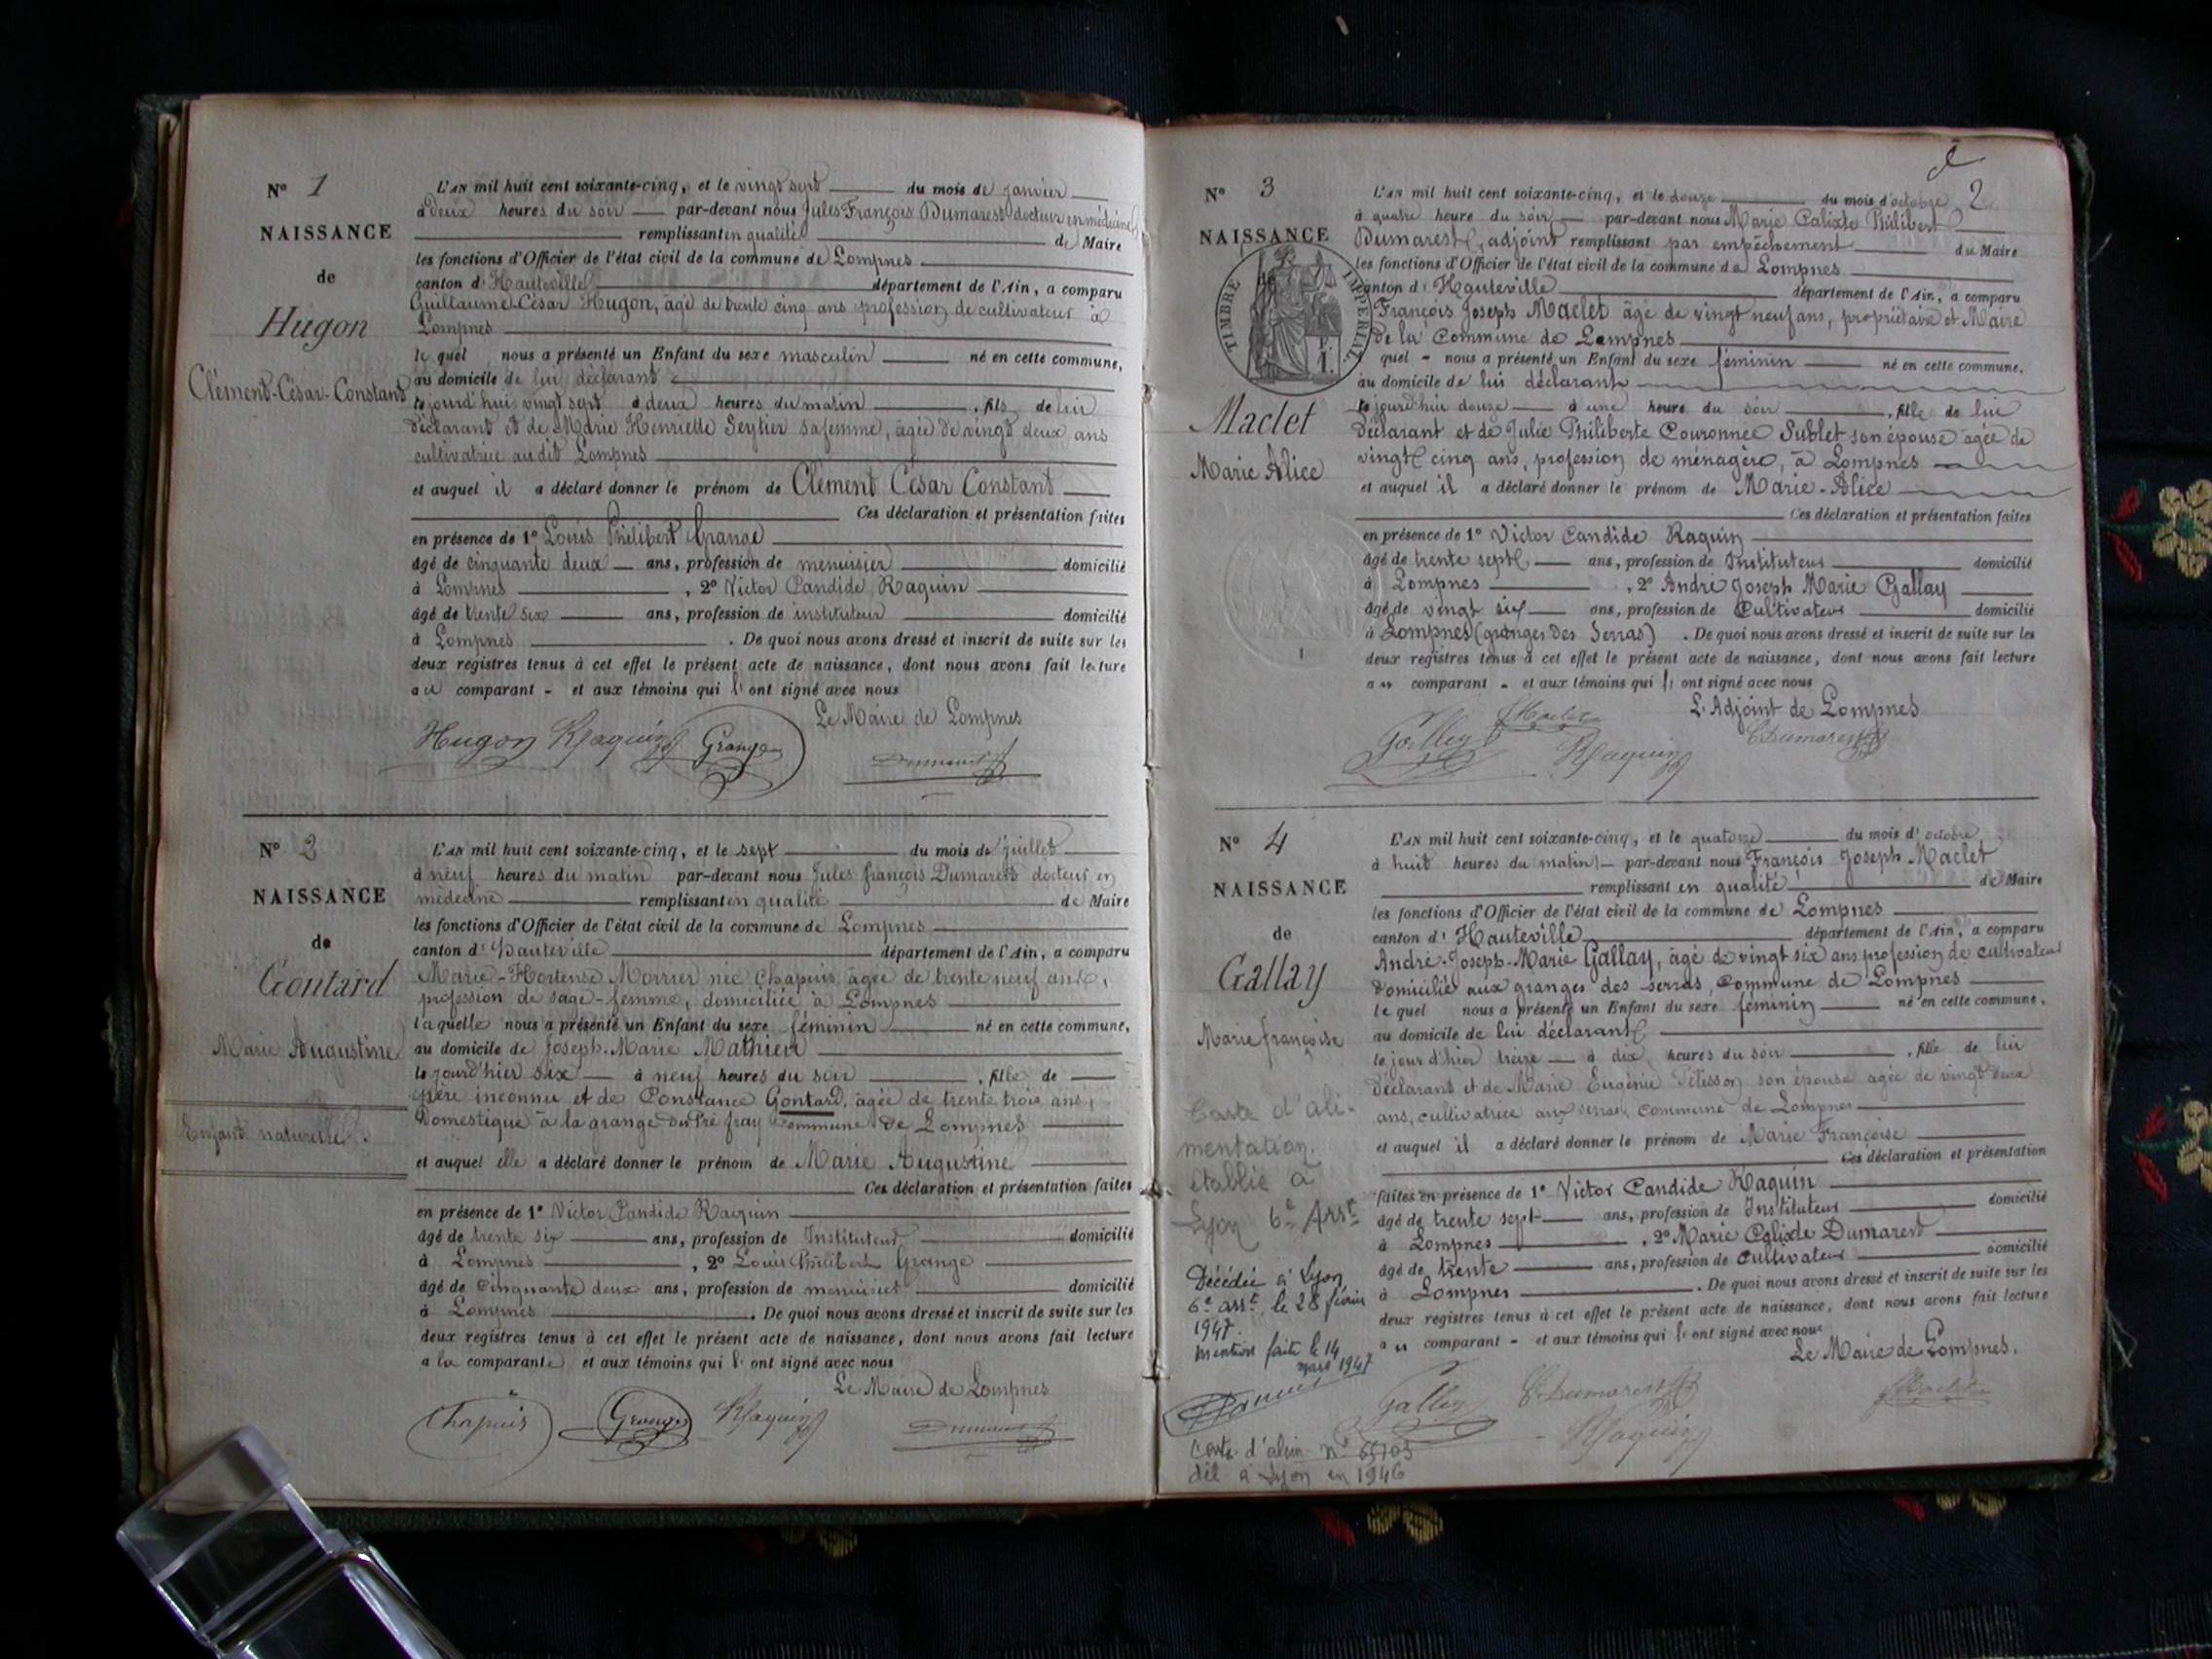 N° 1
NAISSANCE
de
Hugon
Clément-César-Constant
L'AN mil huit cent soixante-cinq, et le vingt sept du mois de janvier
à deux heures du soir par-devant nous Jules François Dumarest docteur en médecine
remplissant en qualité de Maire
les fonctions d'Officier de l'état civil de la commune de Lompnes
canton d'Hauteville département de l'Ain, a comparu
Guillaume-César Hugon, âgé de trente cinq ans profession de cultivateur à
Lompnes
le quel nous a présenté un Enfant du sexe masculin né en cette commune,
au domicile de lui déclarant
le jourd'hui vingt sept à deux heures du matin, fils de lui
déclarant et de Marie Henriette Seytier sa femme, âgée de vingt deux ans
cultivatrice audit Lompnes
et auquel il a déclaré donner le prénom de Clément César Constant
Ces déclaration et présentation faites
en présence de 1° Louis Philibert Grange
âgé de cinquante deux ans, profession de menuisier domicilié
à Lompnes, 2° Victor Candide Raquin
âgé de trente six ans, profession de instituteur domicilié
à Lompnes. De quoi nous avons dressé et inscrit de suite sur les
deux registres tenus à cet effet le présent acte de naissance, dont nous avons fait lecture
au comparant - et aux témoins qui l'ont signé avec nous
Le Maire de Lompnes
Hugon Raquin Grange Dumarest
N° 2
NAISSANCE
de
Gontard
Marie Augustine
Enfant naturelle.
L'AN mil huit cent soixante-cinq, et le sept du mois de juillet
à neuf heures du matin par-devant nous Jules françois Dumarest docteur en
médecine remplissant en qualité de Maire
les fonctions d'Officier de l'état civil de la commune de Lompnes
canton d'Hauteville département de l'Ain, a comparu
Marie-Hortense Morrier née Chapuis âgée de trente neuf ans,
profession de sage-femme, domiciliée à Lompnes
laquelle nous a présenté un Enfant du sexe féminin né en cette commune,
au domicile de Joseph-Marie Mathieu
le jourd'hier six à neuf heures du soir, fille de
père inconnu et de Constance Gontard, âgée de trente trois ans,
Domestique à la grange du Pré fray commune de Lompnes
et auquel elle a déclaré donner le prénom de Marie Augustine
Ces déclaration et présentation faites
en présence de 1° Victor Candide Raquin
âgé de trente six ans, profession de Instituteur domicilié
à Lompnes, 2° Louis Philibert Grange
âgé de cinquante deux ans, profession de menuisier domicilié
à Lompnes. De quoi nous avons dressé et inscrit de suite sur les
deux registres tenus à cet effet le présent acte de naissance, dont nous avons fait lecture
a la comparante et aux témoins qui l'ont signé avec nous
Le Maire de Lompnes
Chapuis Grange Raquin Dumarest
2
N° 3
NAISSANCE
TIMBRE IMPERIAL
Maclet
Marie Alice
L'AN mil huit cent soixante-cinq, et le douze du mois d'octobre
à quatre heure du soir par-devant nous Marie Calixte Philibert
Dumarest, adjoint remplissant par empêchement du Maire
les fonctions d'Officier de l'état civil de la commune de Lompnes
canton d'Hauteville département de l'Ain, a comparu
François Joseph Maclet âgé de vingt neuf ans, propriétaire et Maire
de la Commune de Lompnes
quel - nous a présenté un Enfant du sexe féminin né en cette commune,
au domicile de lui déclarant
le jourd'hui douze à une heure du soir, fille de lui
déclarant et de Julie Philiberte Couronnée Sublet son épouse âgée de
vingt cinq ans, profession de ménagère, à Lompnes
et auquel il a déclaré donner le prénom de Marie-Alice
Ces déclaration et présentation faites
en présence de 1° Victor Candide Raquin
âgé de trente sept ans, profession de Instituteur domicilié
à Lompnes, 2° André Joseph Marie Gallay
âgé de vingt six ans, profession de Cultivateur domicilié
à Lompnes (granges des Serras). De quoi nous avons dressé et inscrit de suite sur les
deux registres tenus à cet effet le présent acte de naissance, dont nous avons fait lecture
au comparant - et aux témoins qui l'ont signé avec nous
L'Adjoint de Lompnes
Gallay Maclet Raquin C. Dumarest
N° 4
NAISSANCE
de
Gallay
Marie françoise
Carte d'ali-
mentation.
établie à
Lyon 6e Arrt
Décédée à Lyon
6e arrt, le 28 février
1947.
mention faite le 14
mars 1947
Carte d'alim. n° 65703
dél à Lyon en 1946
L'AN mil huit cent soixante-cinq, et le quatorze du mois d'octobre
à huit heures du matin par-devant nous François Joseph Maclet
remplissant en qualité de Maire
les fonctions d'Officier de l'état civil de la commune de Lompnes
canton d'Hauteville département de l'Ain, a comparu
André-Joseph-Marie Gallay, âgé de vingt six ans profession de cultivateur
domicilié aux granges des serras, commune de Lompnes
le quel nous a présenté un Enfant du sexe féminin né en cette commune,
au domicile de lui déclarant
le jour d'hier treize à dix heures du soir, fille de lui
déclarant et de Marie Eugénie Pélisson son épouse agée de vingt deux
ans, cultivatrice aux serras, commune de Lompnes
et auquel il a déclaré donner le prénom de Marie Françoise
Ces déclaration et présentation
faites en présence de 1° Victor Candide Raquin
âgé de trente sept ans, profession de Instituteur domicilié
à Lompnes, 2° Marie Calixte Dumarest
âgé de trente ans, profession de cultivateur domicilié
à Lompnes. De quoi nous avons dressé et inscrit de suite sur les
deux registres tenus à cet effet le présent acte de naissance, dont nous avons fait lecture
au comparant - et aux témoins qui l'ont signé avec nous
Le Maire de Lompnes.
Gallay C. Dumarest Raquin Maclet